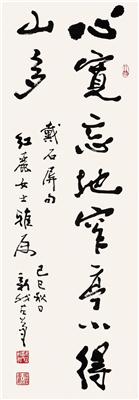 心寬忘地窄亭小得
山多
戴石屏句
紅燕女士雅属
己巳秋日